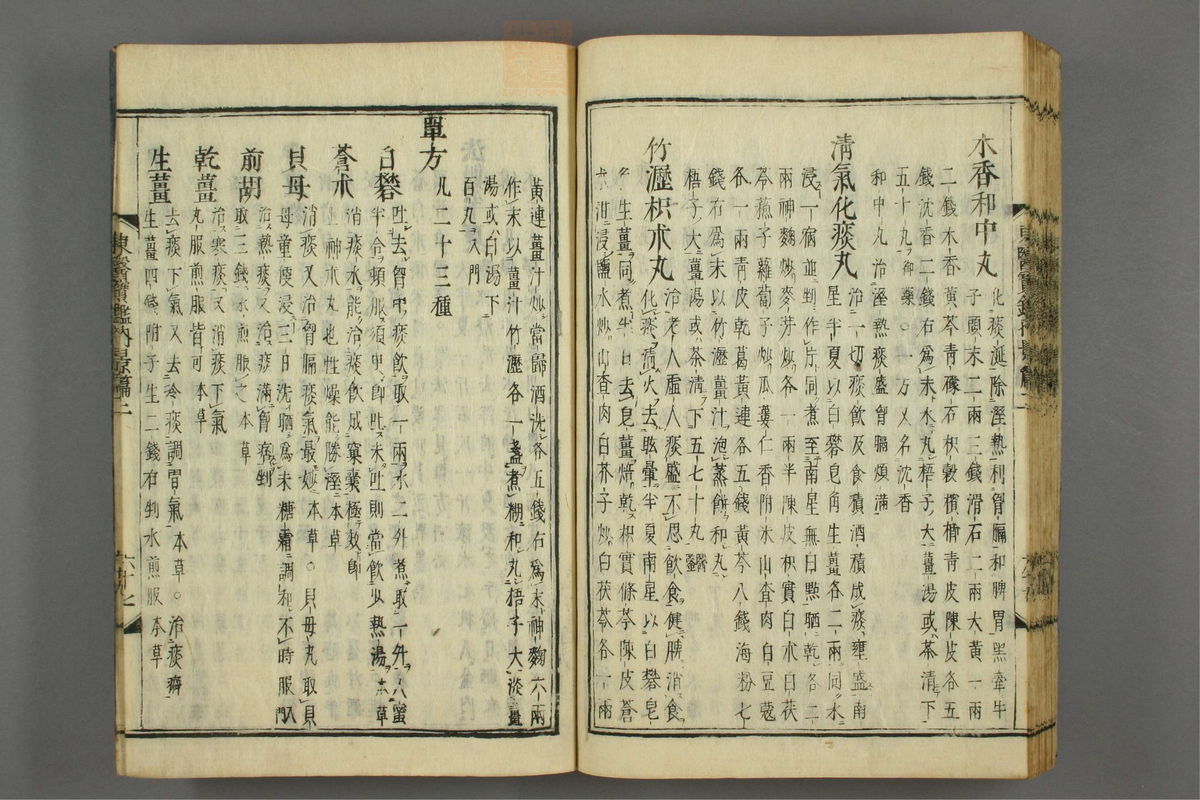 木香和中丸 化痰涎除溼熱利胷膈和脾胃黑牽牛
子頭末二兩三錢滑石二兩大黃一兩
二錢木香黃芩青礞石枳殼檳榔青皮陳皮各五
錢沈香二錢右爲末水丸梧子大薑湯或茶清下
五十丸御藥○一方又名沈香
和中丸治溼熱痰盛胷膈煩滿
清氣化痰丸 治一切痰飲及食積酒積成痰壅盛南
星半夏以白礬皂角生薑各二兩同水
浸一宿並剉作片同煮至南星無白點晒乾各二
兩神麴炒麥芽炒各一兩半陳皮枳實白朮白茯
苓蘇子蘿蔔子炒瓜蔞仁香附米山査肉白豆蔻
各一兩青皮乾葛黃連各五錢黃芩八錢海粉七
錢右爲末以竹瀝薑汁泡蒸餅和丸
梧子大薑湯或茶清下五七十丸醫鑑
竹瀝枳朮丸 治老人虛人痰盛不思飲食健脾消食
化痰清火去眩暈半夏南星以白礬皂
角生薑同煮半日去皂薑焙乾枳實條芩陳皮蒼
朮泔浸鹽水炒山査肉白芥子炒白茯苓各一兩
黃連薑汁炒當歸酒洗各五錢右爲末神麴六兩
作末以薑汁竹瀝各一盞煮糊和丸梧子大淡薑
湯或白湯下
百丸入門
單方 凡二十三種
白礬 吐去胷中痰飲取一兩水二升煮取一升入蜜
半合頓服須臾卽吐未吐則當飲少熱湯本草
蒼朮 消痰水能治痰飲成窠囊極效卽
上神朮丸也性燥能勝溼本草
貝母 消痰又治胷膈痰氣最妙本草○貝母丸取貝
母童便浸三日洗晒爲末糖霜調和不時服入門
前胡 治熱痰又治痰滿胷痞剉
取三錢水煎服之本草
乾薑 治寒痰又消痰下氣
丸服煎服皆可本草
生薑 去痰下氣又去冷痰調胃氣本草○治痰癖
生薑四錢附子生二錢右剉水煎服本草
東醫寶鑑內景篇二